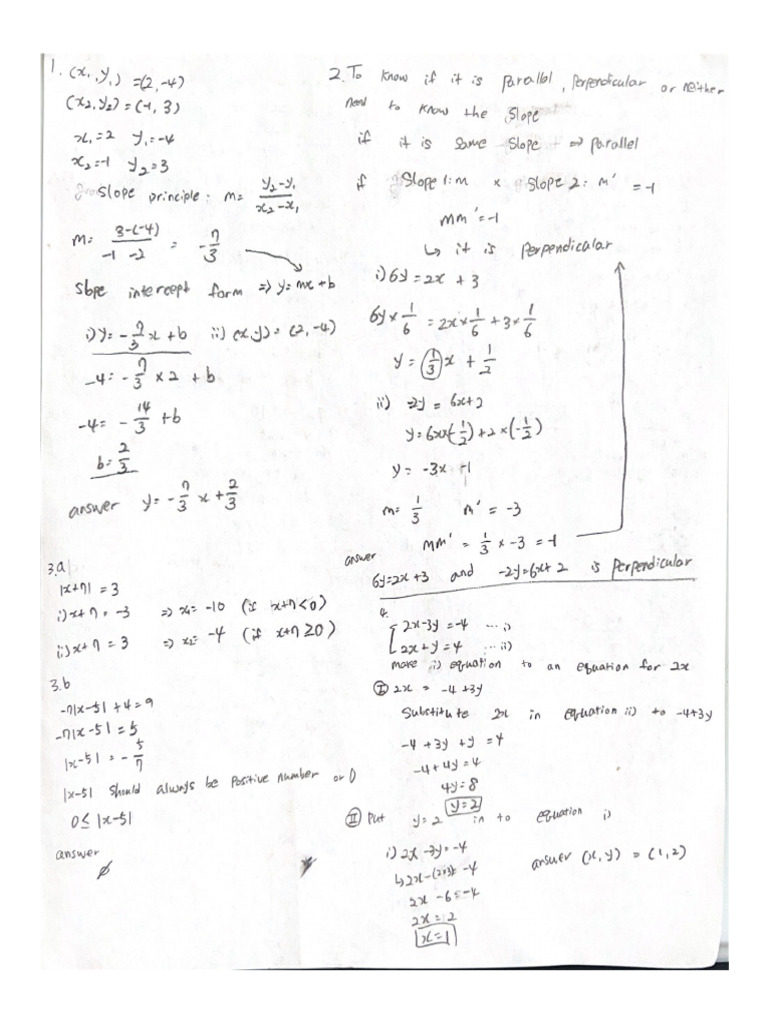 1. (x₁, y₁) = (2, -4)
(x₂, y₂) = (-1, 3)
x₁ = 2 y₁ = -4
x₂ = -1 y₂ = 3
slope principle : m = (y₂-y₁)/(x₂-x₁)
m = (3-(-4))/(-1 -2) = -7/3
slope intercept form ⇒ y = mx + b
i) y = -7/3 x + b ii) (x,y) = (2, -4)
-4 = -7/3 × 2 + b
-4 = -14/3 + b
b = 2/3
answer y = -7/3 x + 2/3
3.a
|x+7| = 3
i) x+7 = -3 ⇒ x₁ = -10 (if x+7<0)
ii) x+7 = 3 ⇒ x₂ = -4 (if x+7≥0)
3.b
-7|x-5| + 4 = 9
-7|x-5| = 5
|x-5| = -5/7
|x-5| should always be positive number or 0
0 ≤ |x-5|
answer
∅
2. To know if it is parallel, perpendicular or neither
need to know the slope
if it is same slope ⇒ parallel
if slope 1: m × slope 2: m' = -1
mm' = -1
↳ it is perpendicular
i) 6y = 2x + 3
6y × 1/6 = 2x × 1/6 + 3 × 1/6
y = 1/3 x + 1/2
ii) -2y = 6x+2
y = 6x×(-1/2) + 2×(-1/2)
y = -3x -1
m = 1/3 m' = -3
mm' = 1/3 × -3 = -1
answer
6y=2x+3 and -2y=6x+2 is perpendicular
4.
2x-3y = -4 ... i)
2x+y = 4 ... ii)
make i) equation to an equation for 2x
Ⓘ 2x = -4 +3y
Substitute 2x in equation ii) to -4+3y
-4 +3y + y = 4
-4 + 4y = 4
4y = 8
y = 2
Ⓘⓘ Put y = 2 in to equation i)
i) 2x -3y = -4
↳ 2x-(2×3) = -4
2x -6 = -4
2x = 2
x = 1
answer (x, y) = (1, 2)